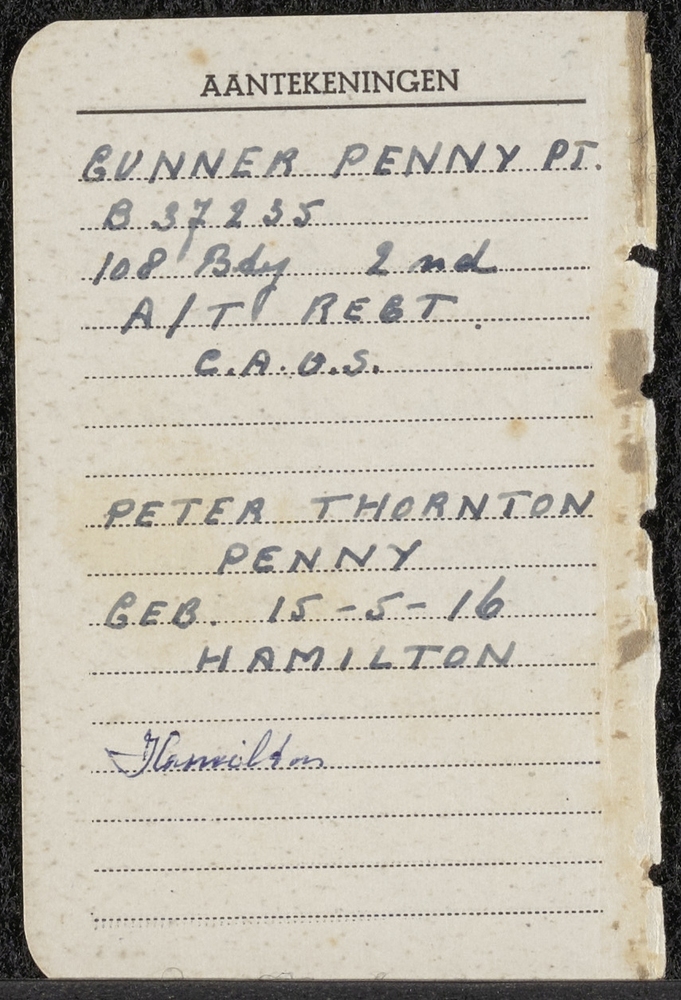 AANTEKENINGEN
GUNNER PENNY PT.
B 37235
108 Bdy 2nd
A/T REGT.
C.A.O.S.
PETER THORNTON
PENNY
GEB. 15-5-16
HAMILTON
Hamilton